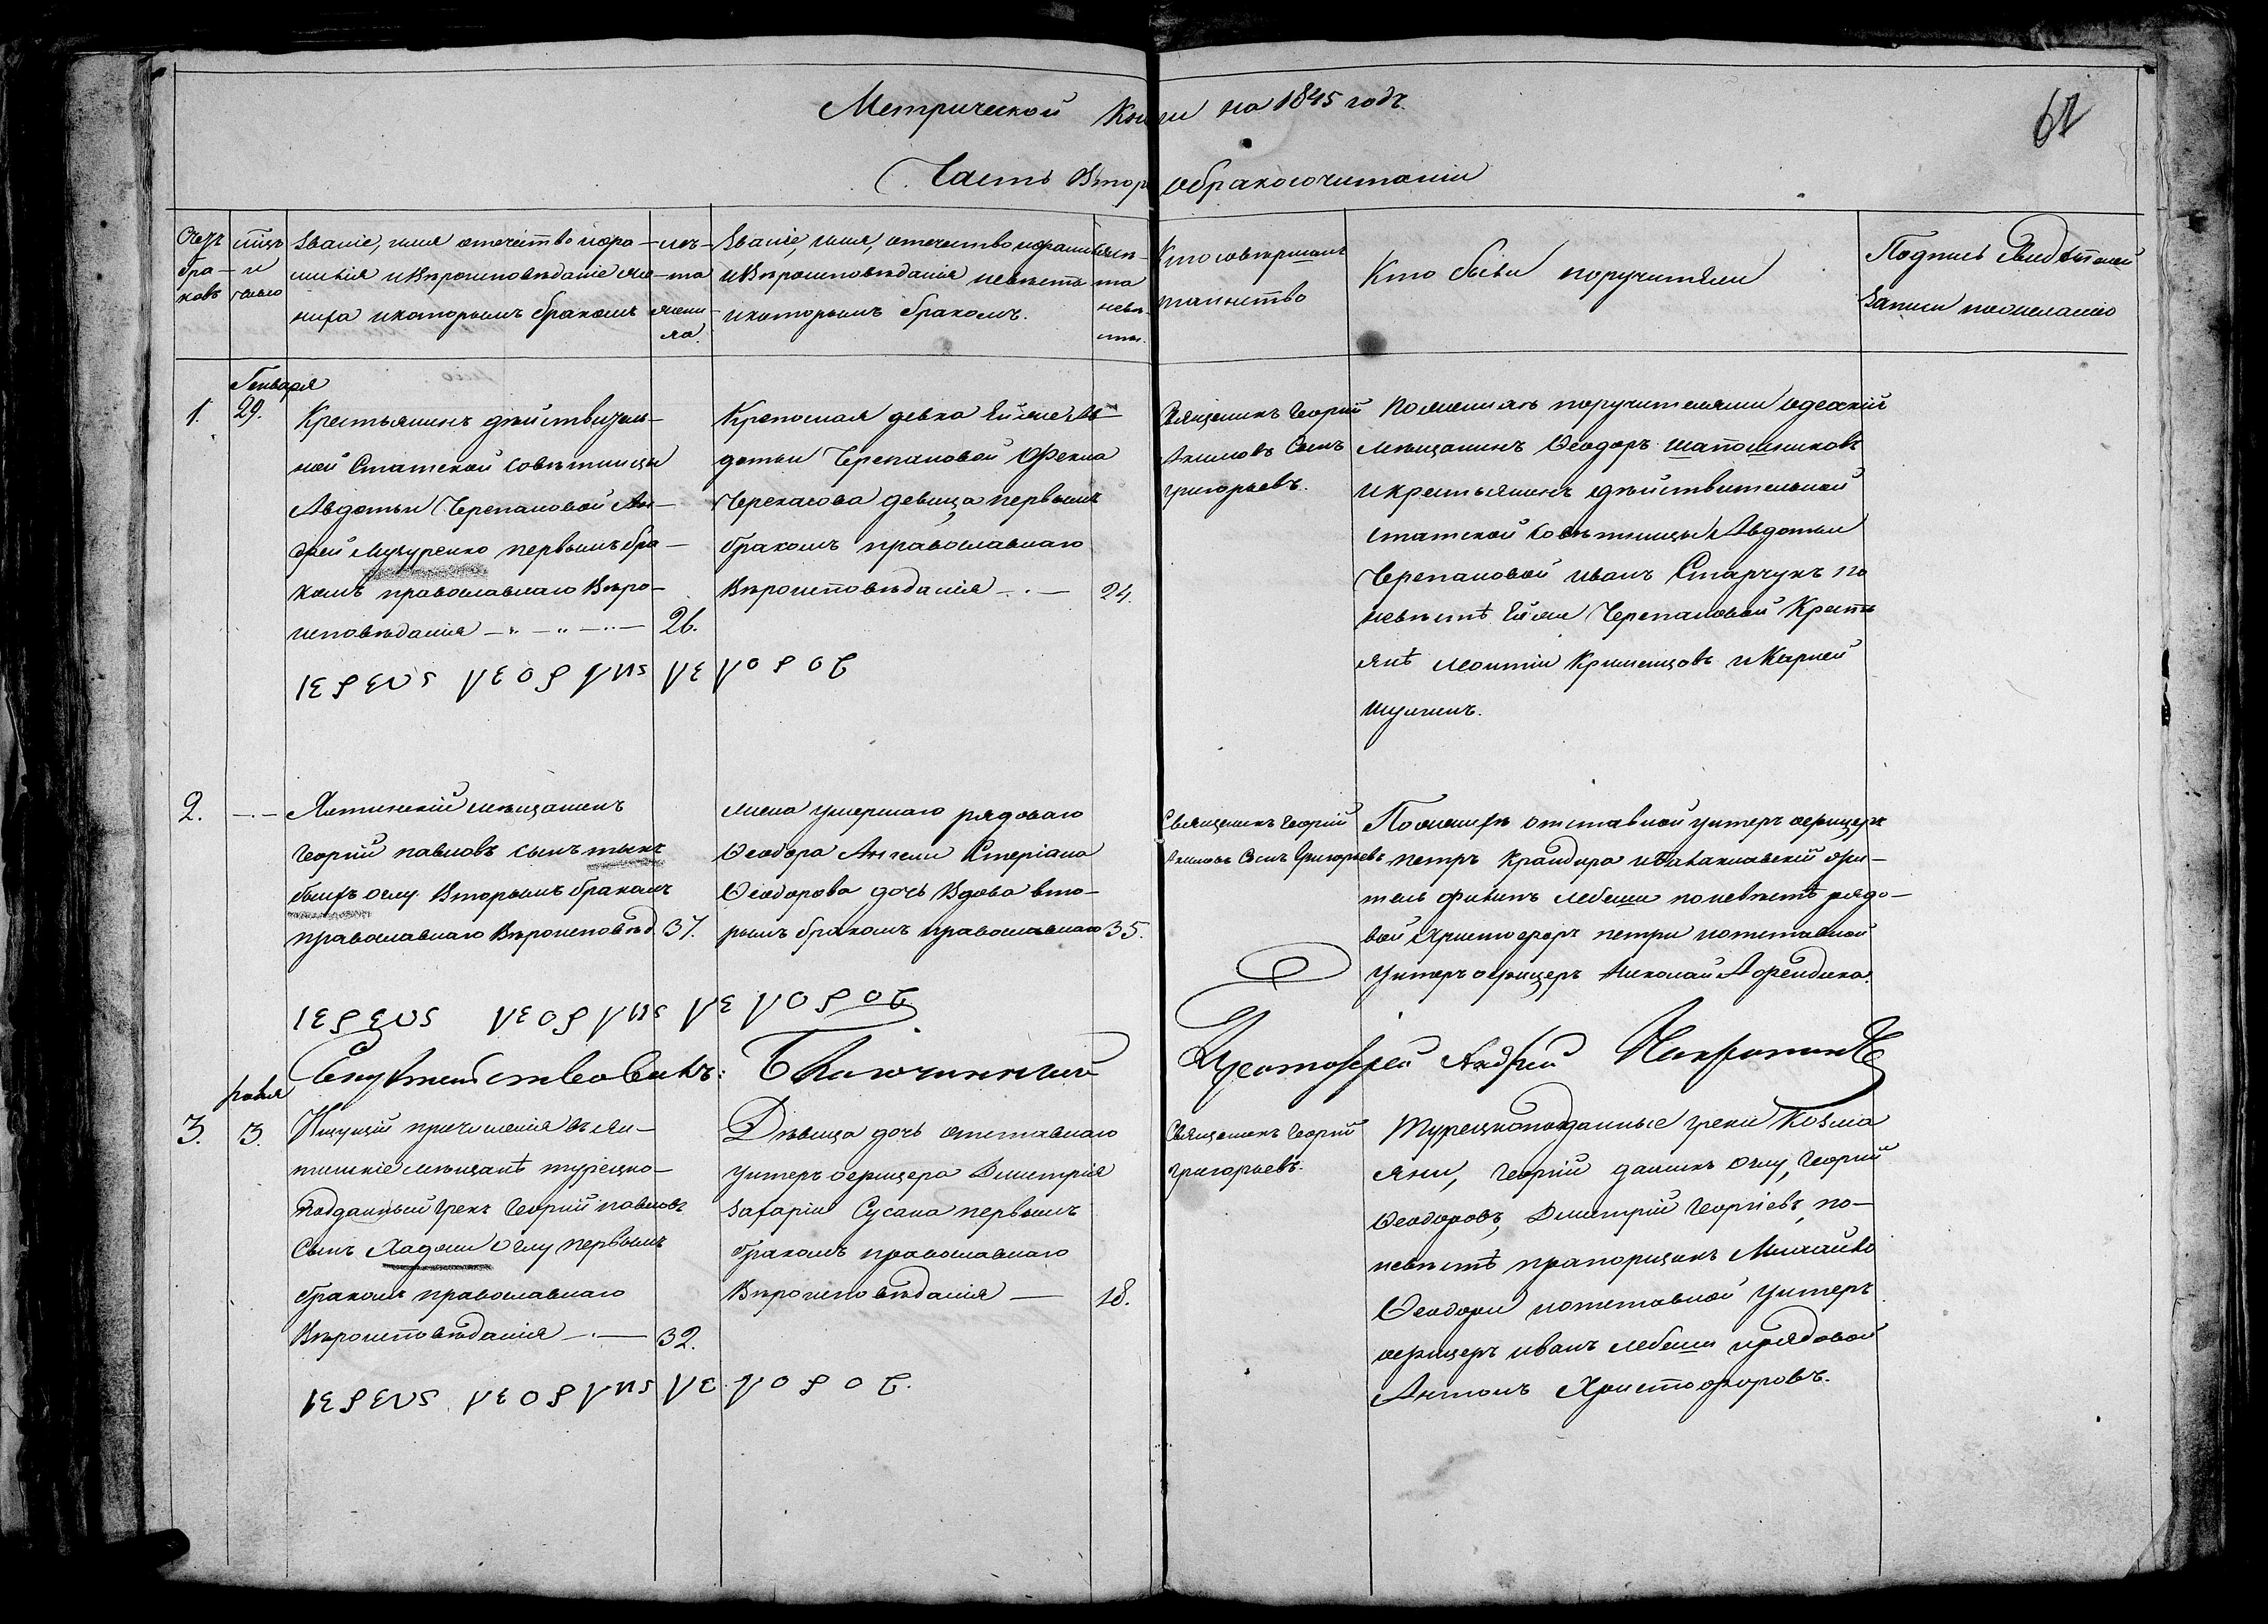 Метрической Кни ги на 1845 годъ.
61
Часть Втор о бракосочитаніи
Счетъ бра-ковъ
мцъ и число
Званіе, имя отечество и фра-
милія и Вѣроисповѣданіе же-
ниха и каторымъ бракомъ
лѣ-
та
жени-
ха.
Званіе, имя, отечество и фамилія
и Вѣроисповѣданія невѣста
и каторымъ бракомъ.
лѣ-
та
невѣ-
сты.
Кто совѣршалъ
таинство
Кто были поручители
Подпись Свидѣтелей
Записи по желанію
Генваря
1. 29.
Крестьянинъ дѣйствител-
ной Статской Совѣтницы
Авдотьи Черепановой Ан-
дрей первымъ бра-
комъ православнаго Вѣро-
исповѣданія 26.
Крепосная девка Ей же Ав-
дотьи Черепановой Фекла
Черкасова девица первымъ
бракомъ православнаго
Вѣроисповѣданія 24.
Священникъ Георгій
Акимовъ Сынъ
Григорьевъ.
По женихѣ поручителями одескій
мѣщанинъ Ѳеодоръ Шапошниковъ
и крестьянинъ дѣйствительной
статской Совѣтницы Авдотьи
Черепановой Иванъ Старчукъ по
невѣстѣ Ей же Черепановой Кресть
янѣ Леонтіи и Карней
2.
Ялтинскій мѣщанинъ
Георгій Павловъ сынъ
оглу Вторымъ бракомъ
православнаго Вѣроисповѣд. 37.
жена умершаго рядоваго
Ѳеодора Ангели Стеріана
Ѳеодорова дочь Вдова вто-
рымъ бракомъ православнаго 35.
Священникъ Георгій
Акимовъ Сынъ Григорьевъ
По женихѣ отставной унтеръ офицеръ
Петръ и Балаклавскій жи-
тель Филипъ Лебеши по невѣстѣ рядо-
вой Христофоръ Петри и отставной
унтеръ офицеръ Николай
Свидѣтельствовалъ: Благочинный
Протоіерей Андрей
3. 3.
Ищущій причисленія въ Ял-
тинскіе мѣщанѣ турецко-
подданный Грекъ Георгій Павловъ
Сынъ Хаджи Оглу первымъ
бракомъ православнаго
Вѣроисповѣданія 32.
Дѣвица дочь отставнаго
унтеръ офицера Дмитрія
Зафаріи Сусана первымъ
бракомъ православнаго
Вѣроисповѣданія 18.
Священникъ Георгій
Григорьевъ.
Турецкоподданные греки Козма
Яни, Георгій оглу, Георгій
Ѳеодоровъ, Дмитрій Георгіевъ, по-
невѣстѣ прапорщикъ Михайло
Ѳеодори и отставной унтеръ
офицеръ Иванъ Лебеши и рядовой
Антонъ Христофоровъ.